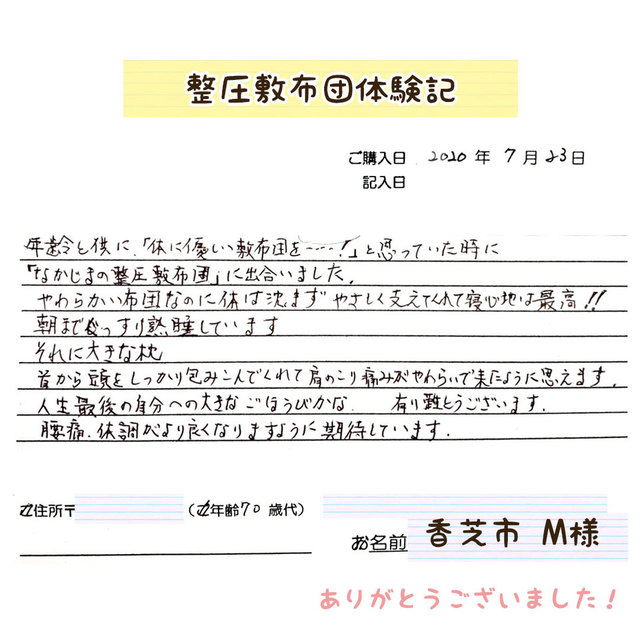 整圧敷布団体験記
ご購入日 2020 年 7 月 23 日
記入日
年齢と供に、「体に優しい敷布団を……!」と思っていた時に
「なかじまの整圧敷布団」に出合いました。
やわらかい布団なのに体は沈まず やさしく支えてくれて寝心地は最高!!
朝までぐっすり熟睡しています
それに大きな枕
首から頭をしっかり包みこんでくれて肩のこり痛みがやわらいで来たように思えます。
人生最後の自分への大きなごほうびかな 有り難とうございます.
腰痛.体調がより良くなりますように期待しています.
住所〒 (年齢70 歳代)
お名前 香芝市 M様
ありがとうございました!